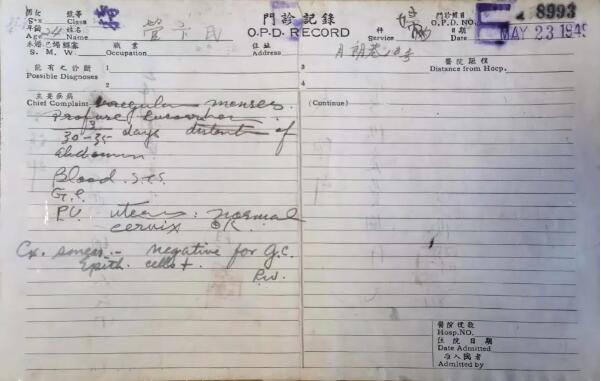 男女 號等
Sex Class
年齡 24 姓名
Age Name
門診記錄
O.P.D. RECORD
科
Service
門診號目
O.P.D. NO. 8993
日期
Date MAY 23 194
未婚 已婚 鰥寡
S. M. W.
職業
Occupation
住址
Address
醫院距程
Distance from Hosp.
能有之診斷
Possible Diagnoses
1
2
3
4
主要疾病
Chief Complaint Irregular menses.
Profuse
3
30-35 days distent of
abdomen.
Blood
G.C.
P.V. uterus: normal
cervix OK
Cx. smear - negative for g.c.
Epith. cells +.
(Continue)
醫院號數
Hosp.NO.
住院日期
Date Admitted
准入醫者
Admitted by